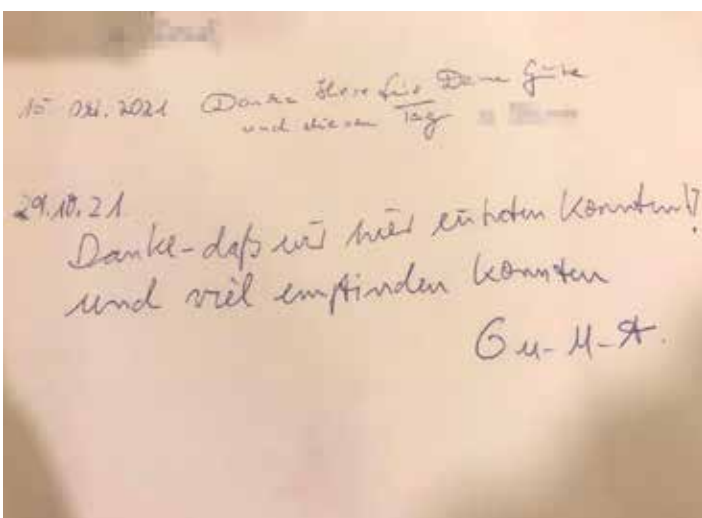 15. Okt. 2021 Danke Herr für Deine Güte
und diesen Tag
29.10.21
Danke-daß wir hier eintreten konnten!!
und viel empfinden konnten
G u- M-A.